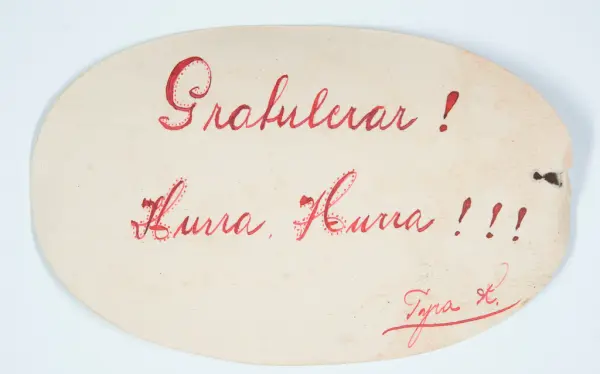 Gratulerar!
Hurra, Hurra!!!
Tyra K.